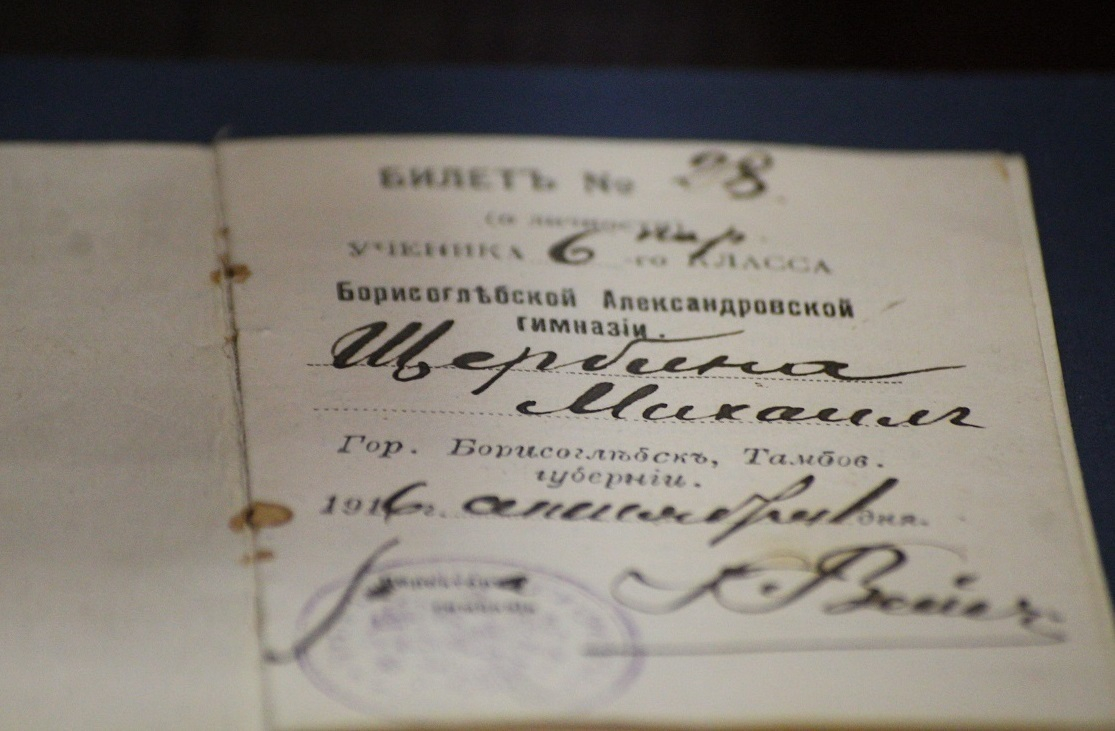 БИЛЕТЪ № 98.
(о личности)
УЧЕНИКА 6 пар. -го КЛАССА
Борисоглѣбской Александровской
гимназіи.
Щербина
Михаилъ
Гор. Борисоглѣбскъ, Тамбов.
губерніи.
1916 г. сентября 1 дня.